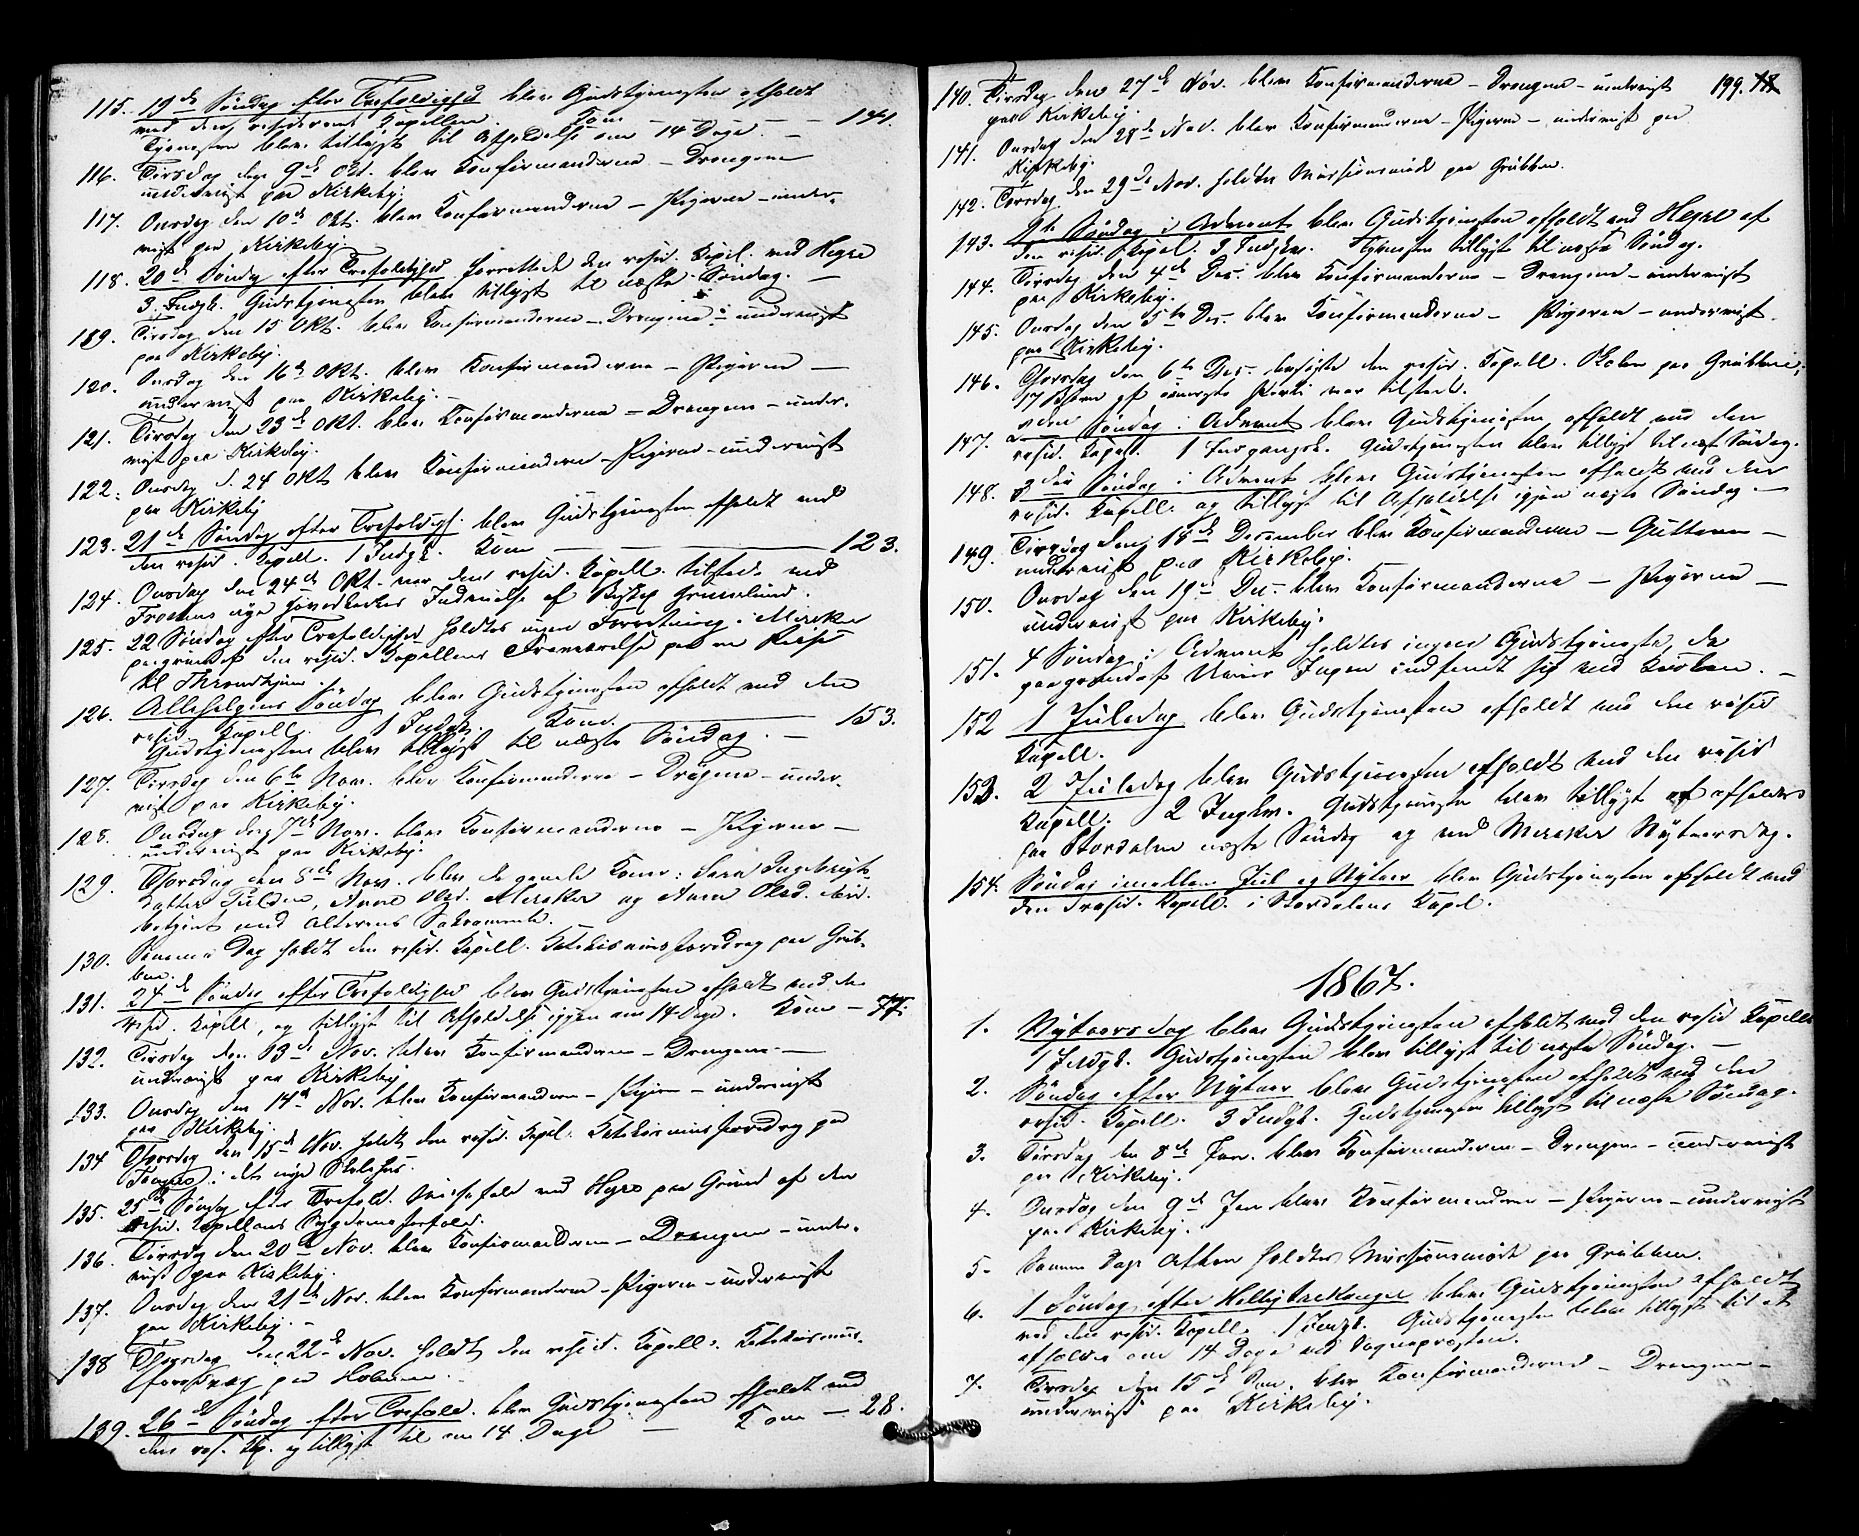 115. 19de Søndag efter Trefoldighed blev Gudstjenesten afholdt
ved den residerende Capellan. Kom — 141.
Tjenesten blev tillyst til Afholdelse om 14 Dage. —
116. Tirsdag den 9de Okt. blev Konfirmanderne — Drengene
undervist paa Kirkeby.
117. Onsdag den 10de Okt. blev Konfirmanderne — Pigerne — under-
vist paa Kirkeby.
118. 20de Søndag efter Trefoldighed forrettede den resid. Kapel. ved Hegre
3 Indgk. Gudstjenesten blev tillyst til næste Søndag. —
119. Tirsdag den 15 Okt. blev Konfirmanderne — Drengene — undervist
paa Kirkeby.
120. Onsdag den 16de Okt. blev Konfirmanderne — Pigerne —
undervist paa Kirkeby. —
121. Tirsdag den 23de Okt. blev Konfirmanderne — Drengene — under-
vist paa Kirkeby.
122. Onsdag d. 24 Okt blev Konfirmanderne — Pigerne — undervist
paa Kirkeby
123. 21de Søndag efter Trefoldigh: blev Gudstjenesten afholdt ved
den resid. Kapell. 1 Indgk. Kom — 123.
124. Onsdag den 24de Okt. var den resid. Kapell. tilstede ved
nye Indvielse af Biskop Grimelund.
125. 22 Søndag efter Trefoldighed holdtes ingen Forretning i Meraker
paagrund af den resid. Kapellans Fraværelse paa en Reise
til Throndhjem.
126. Allehelgens Søndag blev Gudstjenesten afholdt ved den
resid. Kapell. 1 Indgk. Kom. — 153.
Gudstjenesten blev tillyst til næste Søndag. —
127. Tirsdag den 6te Nov. blev Konfirmanderne — Drengene — under-
vist paa Kirkeby.
128. Onsdag den 7de Nov. blev Konfirmanderne — Pigerne —
undervist paa Kirkeby.
129. Thorsdag den 8de Nov. blev de gamle Koner: Sara Ingebrigts-
datter, Anne Olsd. Meraker og Anne Olsd.
betjent med Alterens Sakramente.
130. Samme Dag holdt den resid. Kapell. Katekismusforedrag paa Grub-
ben.
131. 24de Søndag efter Trefoldighed blev Gudstjenesten afholdt ved den
resid. Kapell, og tillyst til Afholdelse igjen om 14 Dage. Kom — 77.
132. Tirsdag den 13de Nov. blev Konfirmanderne — Drengene —
undervist paa Kirkeby.
133. Onsdag den 14de Nov. blev Konfirmanderne — Pigerne — undervist
paa Kirkeby.
134 Thorsdag den 15de Nov. holdt den resid. Kapel. Katekismusforedrag paa
i det nye Skolehus.
135. 25de Søndag efter Trefold. Messefald ved Hegre paa Grund af den
resid. Kapellans Sygdomsforfald.
136. Tirsdag den 20de Nov. blev Konfirmanderne — Drengene — under-
vist paa Kirkeby.
137. Onsdag den 21de Nov. blev Konfirmanderne — Pigerne — undervist
paa Kirkeby. —
138 Thorsdag den 22de Nov. holdt den resid. Kapell. Katekismus-
foredrag paa
139. 26de Søndag efter Trefold. blev Gudstjenesten afholdt ved
den res. Kp. og tillyst til om 14 Dage — Kom — 28.
199. 18
140. Tirsdag den 27de Nov. blev Konfirmanderne — Drengene — undervist
paa Kirkeby.
141. Onsdag den 28de Nov. blev Konfirmanderne — Pigerne — undervist paa
Kirkeby.
142. Torsdag den 29de Nov. holdtes Missionsmøde paa Grubben.
143. 1te Søndag i Advent blev Gudstjenesten afholdt ved Hegre af
den resid. Kapel. 3 Indgkv. Tjenesten tillyst til næste Søndag.
144. Tirsdag den 4de Des. blev Konfirmanderne — Drengene — undervist
paa Kirkeby.
145. Onsdag den 5te Des. blev Konfirmanderne — Pigerne — undervist.
paa Kirkeby.
146. Thorsdag den 6te Des. besøgte den resid. Kapell. Skolen paa Grubben;
17 Børn af øverste Parti var tilstede.
147. 2den Søndag i Advent blev Gudstjenesten afholdt ved den
resid. Kapell. 1 Indgangsk. Gudstjenesten blev tillyst til næst Søndag.
148. 3die Søndag i Advent blev Gudstjenesten afholdt ved den
resid. Kapell. og tillyst til Afholdelse igjen næste Søndag. —
149. Tirsdag den 18de December blev Konfirmanderne — Gutterne —
undervist paa Kirkeby.
150. Onsdag den 19de Des. blev Konfirmanderne — Pigerne —
undervist paa Kirkeby.
151. 4 Søndag i Advent holdtes ingen Gudstjeneste, da
paagrund af Ingen indfandt sig ved Kirken. —
152 1 Juledag blev Gudstjenesten afholdt ved den resid
Kapell.
153. 2 Juledag blev Gudstjenesten afholdt ved den resid
Kapell. 2 Ingkv. Gudstjeneste blev tillyst at afholdes
paa Stordalen næste Søndag og ved Meraker Nytaarsdag.
154. Søndag imellem Jul og Nytaar blev Gudstjenesten afholdt ved
den resid. Kapell. i Stordalens Kapel.
1867.
1. Nytaarsdag blev Gudstjenesten afholdt ved den resid Kapell
1 Indgk. Gudstjenesten blev tillyst til næste Søndag. —
2. Søndag efter Nytaar blev Gudstjenesten afholdt ved den
resid. Kapell. 3 Indgk. Gudstjenesten tillyst til næste Søndag.
3. Tirsdag den 8de Jan. blev Konfirmanderne — Drengene — undervist
paa Kirkeby.
4. Onsdag den 9de Jan blev Konfirmanderne — Pigerne — undervist
paa Kirkeby.
5. Samme Dags Aften holdtes Missionsmøde paa Grubben.
6. 1 Søndag efter Helligtrekonger blev Gudstjenesten afholdt
ved den resid. Kapell. 1 Indgk. Gudstjenesten blev tillyst til at
afholdes om 14 Dage ved Sognepresten.
7. Tirsdag den 15de Jan. blev Konfirmanderne — Drengene —
undervist paa Kirkeby.